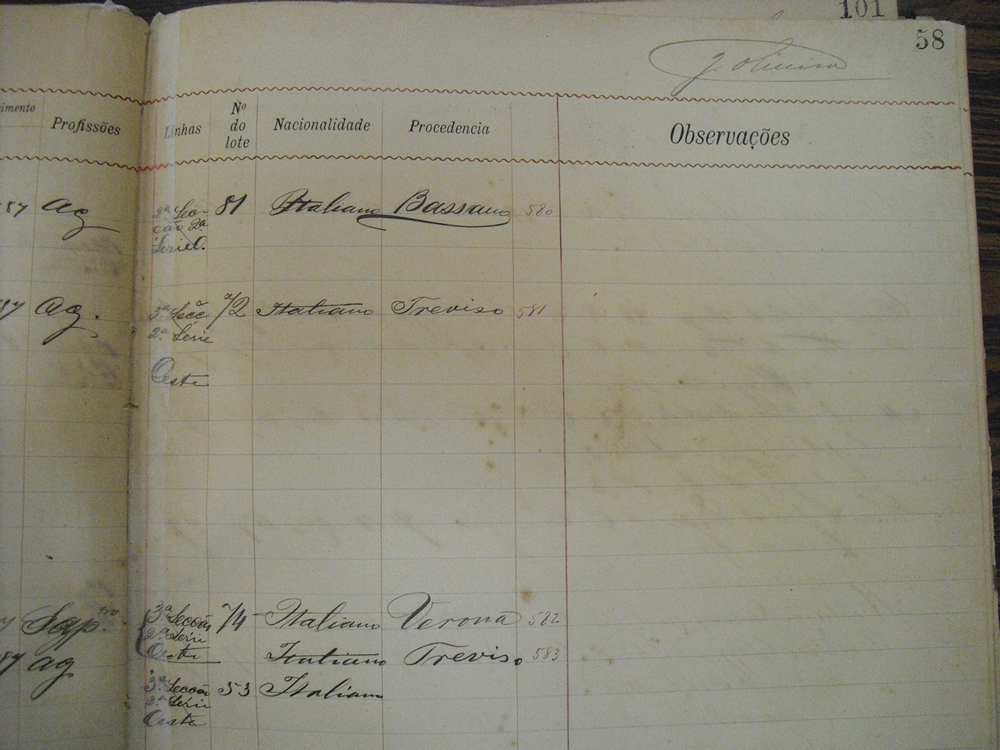 101
58
J. Oliveira
imento Profissões Linhas Nº do lote Nacionalidade Procedencia Observações
87 Ag 2ª Sec- 81 Italiano Bassano 580
ção 2ª
Serie O.
87 Ag. 3ª Secc 72 Italiano Treviso 581
2ª Série
Oeste
Sap.ro 3ª Secção 74 Italiano Verona 582
2ª Série
87 ag Oeste Italiano Treviso 583
3ª Secção 53 Italiano
2ª Série
Oeste